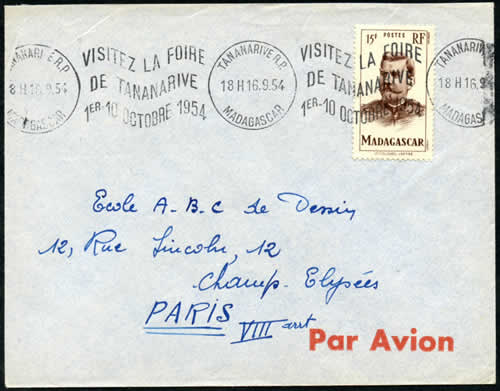 TANANARIVE R.P.
18 H 16.9.54
MADAGASCAR
VISITEZ LA FOIRE
DE TANANARIVE
1ER-10 OCTOBRE 1954
TANANARIVE R.P.
18 H 16.9.54
MADAGASCAR
VISITEZ LA FOIRE
DE TANANARIVE
1ER-10 OCTOBRE 1954
TANANARIV
18 H 16.9.54
MADAGAS
15F POSTES RF
MADAGASCAR
Ecole A-B-C de Dessin
12, Rue Lincoln, 12
Champ-Elysées
PARIS
VIII arrt
Par Avion